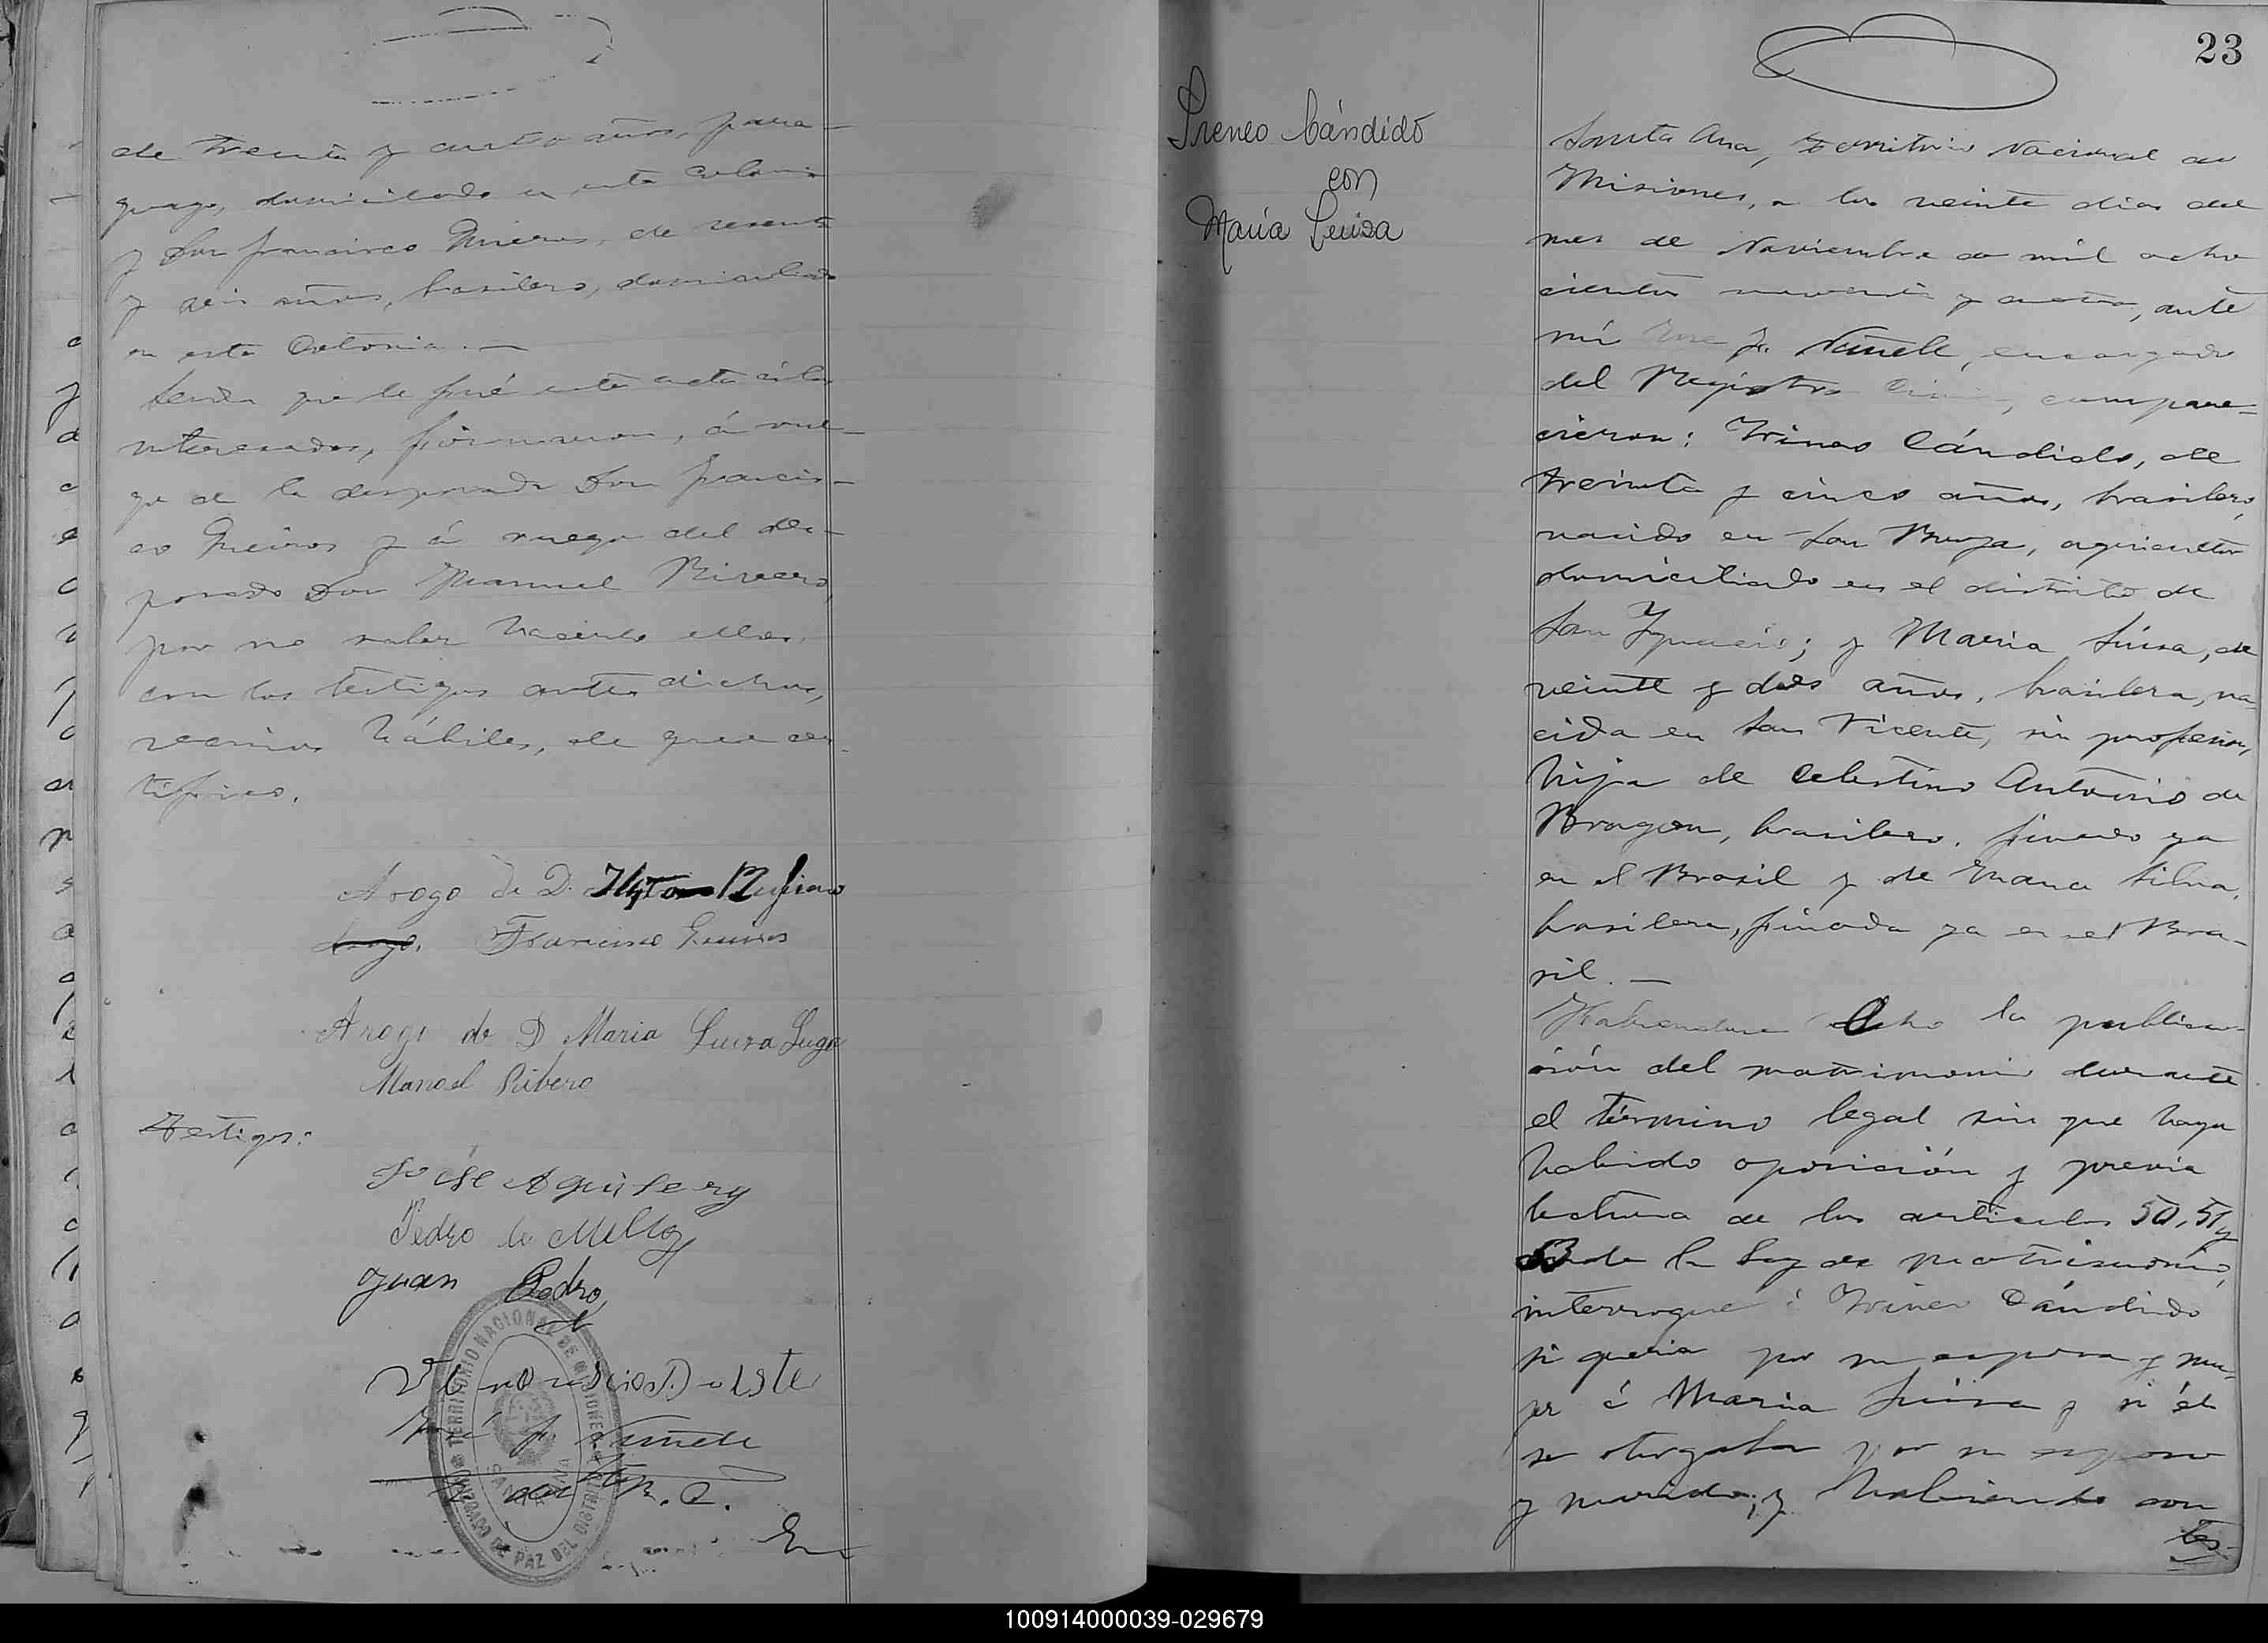 de treinta y cuatro años, para-
guayo, domiciliado en esta Colonia
y Don Francisco Queiros, de sesenta
y seis años, brasilero, domiciliado
en esta Colonia.—
Leida que le fué esta acta á los
interesados, firmaron, á rue-
go de la desposada Don Francis-
co Queiros y á ruego del des-
posado Don Manuel Rivero,
por no saber hacerlo ellos,
con los testigos antes dichos,
vecinos hábiles, de que cer-
tifico.
Arogo de D.
Francisco Queiros
Arogo de D Maria Luiza Lugo
Manoel Ribero
Testigos:
José Aguilera
Pedro de Mello
Juan Pedro
José J.
E. del R. C.
TERRITORIO NACIONAL DE MISIONES
JUZGADO DE PAZ DEL DISTRITO
SANTA ANA
En
23
Ireneo Cándido
con
María Luisa
Santa Ana, Territorio Nacional de
Misiones, a los veinte dias del
mes de Noviembre de mil ocho
cientos noventa y cuatro, ante
mí José J. encargado
del Registro Civil, compare-
cieron: Irineo Cándido, de
treinta y cinco años, brasilero,
nacido en San Borja, agricultor
domiciliado en el distrito de
San Ygnacio; y Maria Luisa, de
veinte y dos años, brasilera, na-
cida en San Vicente, sin profesion,
hija de Celestino Antonio de
brasilero, finado ya
en el Brasil y de Silva,
brasilera, finada ya en el Bra-
sil.—
Habiendose hecho la publica-
ción del matrimonio durante
el término legal sin que haya
habido oposición y previa
lectura de los articulos 50, 51 y
53 de la Ley de matrimonio,
interrogue á Irineo Cándido
si queria por su esposa y mu-
jer á Maria Luisa y si él
se otorgaba por su esposo
y marido; y habiendo con
tes-
100914000039-029679